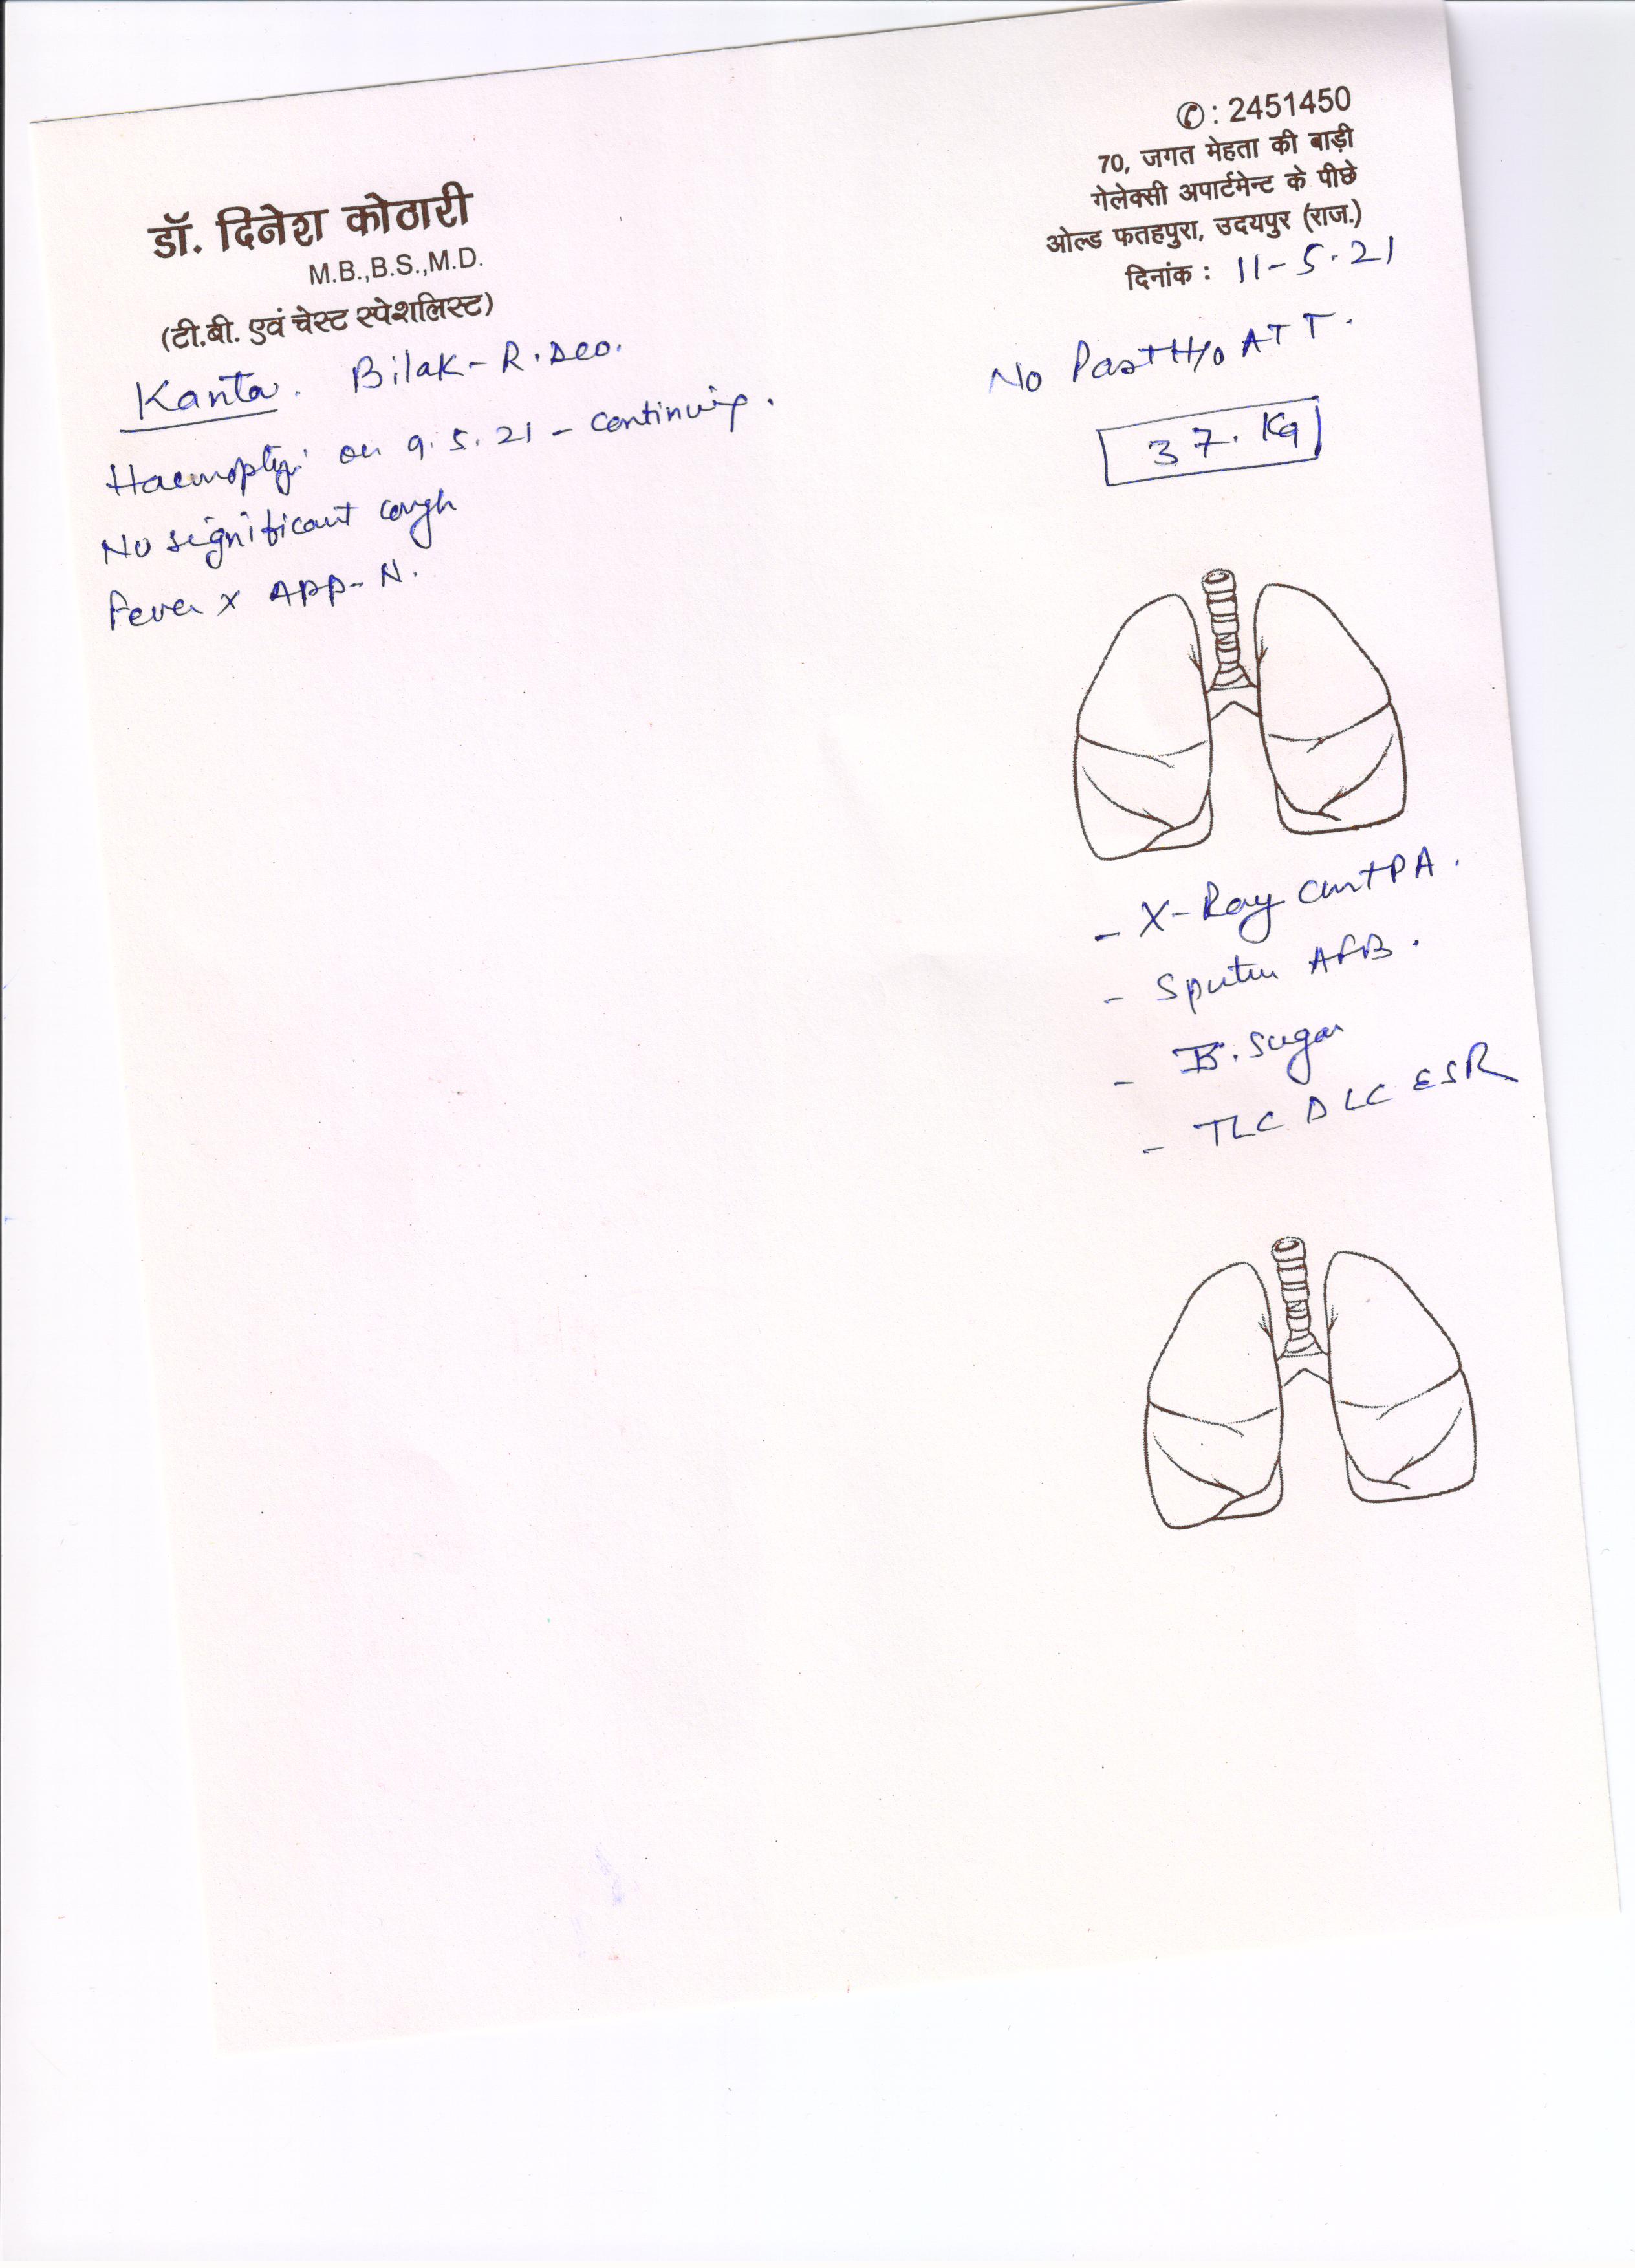 डॉ. दिनेश कोठारी
M.B.,B.S.,M.D.
(टी.बी. एवं चेस्ट स्पेशलिस्ट)
✆ : 2451450
70, जगत मेहता की बाड़ी
गेलेक्सी अपार्टमेन्ट के पीछे
ओल्ड फतहपुरा, उदयपुर (राज.)
दिनांक : 11-5.21
Kanta. Bilak-R.Deo.
Haemoptysi on 9.5.21 - continuing.
No significant cough
Fever x App-N.
No Past H/o ATT.
37. Kg
- X-Ray chest PA.
- Sputum AFB.
- B. Sugar
- TLC DLC ESR